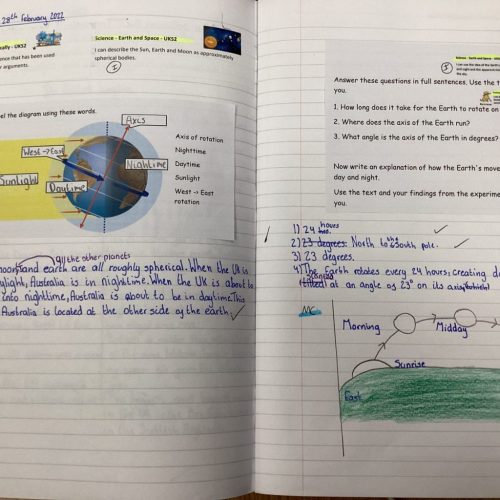 28th February 2022
cally - UKS2
ence that has been used
r arguments.
Science - Earth and Space - UKS2
I can describe the Sun, Earth and Moon as approximately
spherical bodies.
el the diagram using these words.
Axis
West → East
Nightime
Sunlight
Daytime
Axis of rotation
Nighttime
Daytime
Sunlight
West -> East
rotation
all the other planets
moon and earth are all roughly spherical. When the UK is
ylight, Australia is in nighttime. When the UK is about to
into nighttime, Australia is about to be in daytime. This
Australia is located at the other side of the earth.
Science - Earth and Space - UKS2
Answer these questions in full sentences. Use the t
you.
1. How long does it take for the Earth to rotate on
2. Where does the axis of the Earth run?
3. What angle is the axis of the Earth in degrees?
Now write an explanation of how the Earth's move
day and night.
Use the text and your findings from the experime
you.
1) 24 hours
2) 23 degrees. North to the South pole.
3) 23 degrees.
4) The Earth rotates every 24 hours, creating da
(tilted) at an angle of 23° on its axis, (which)
MC
Morning
Midday
Sunrise
East